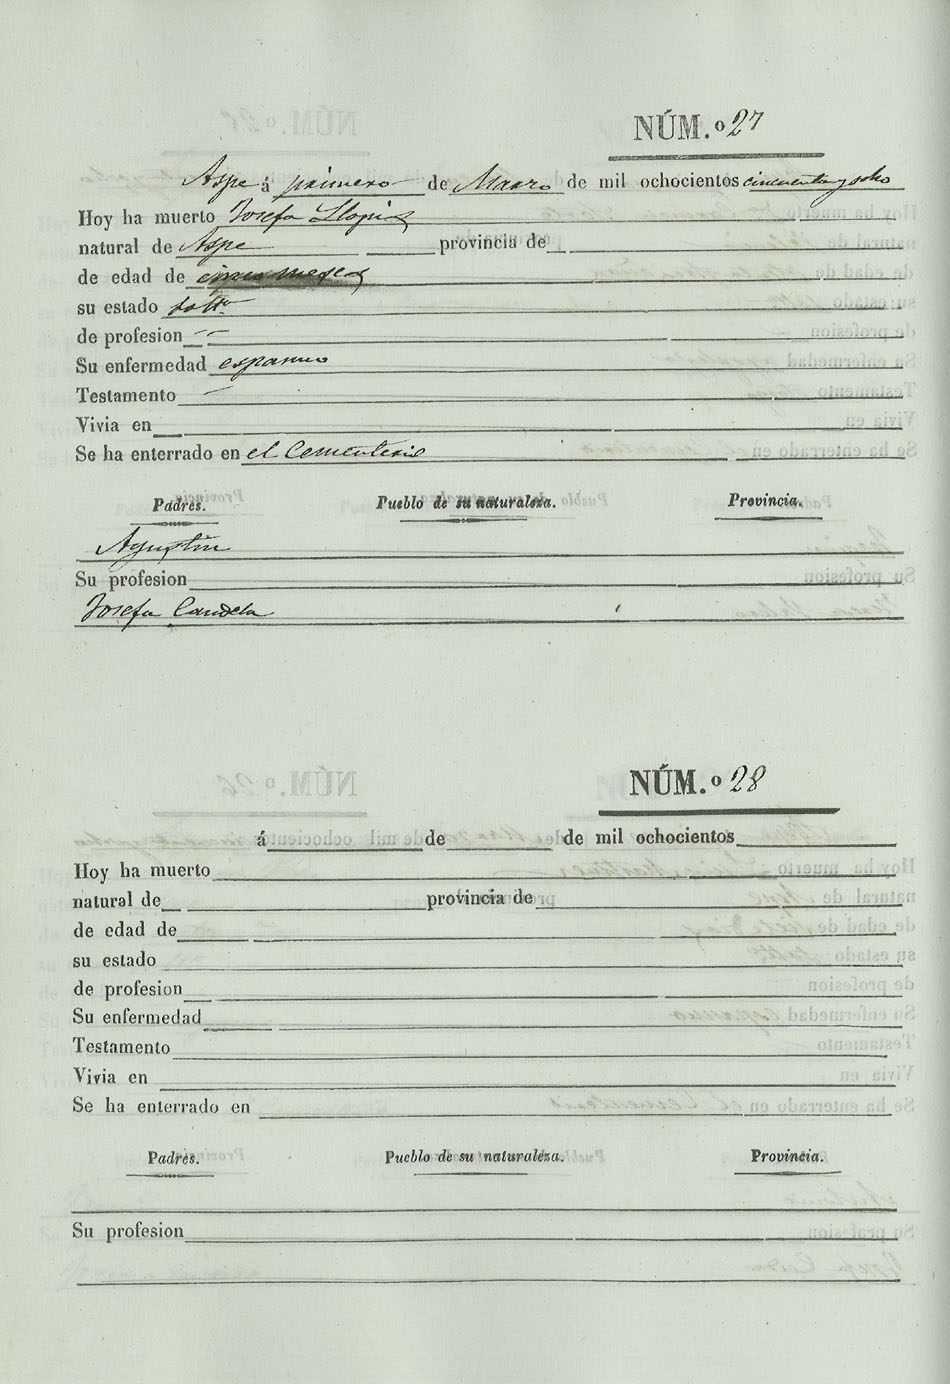 NÚM.º 27
Aspe á primero de Marzo de mil ochocientos cincuenta y ocho
Hoy ha muerto Josefa Llopis
natural de Aspe provincia de
de edad de cinco meses
su estado solt.ª
de profesion
Su enfermedad espasmo
Testamento
Vivia en
Se ha enterrado en el Cementerio
Padres. Pueblo de su naturaleza. Provincia.
Agustin
Su profesion
Josefa Candela
NÚM.º 28
á de de mil ochocientos
Hoy ha muerto
natural de provincia de
de edad de
su estado
de profesion
Su enfermedad
Testamento
Vivia en
Se ha enterrado en
Padres. Pueblo de su naturaleza. Provincia.
Su profesion